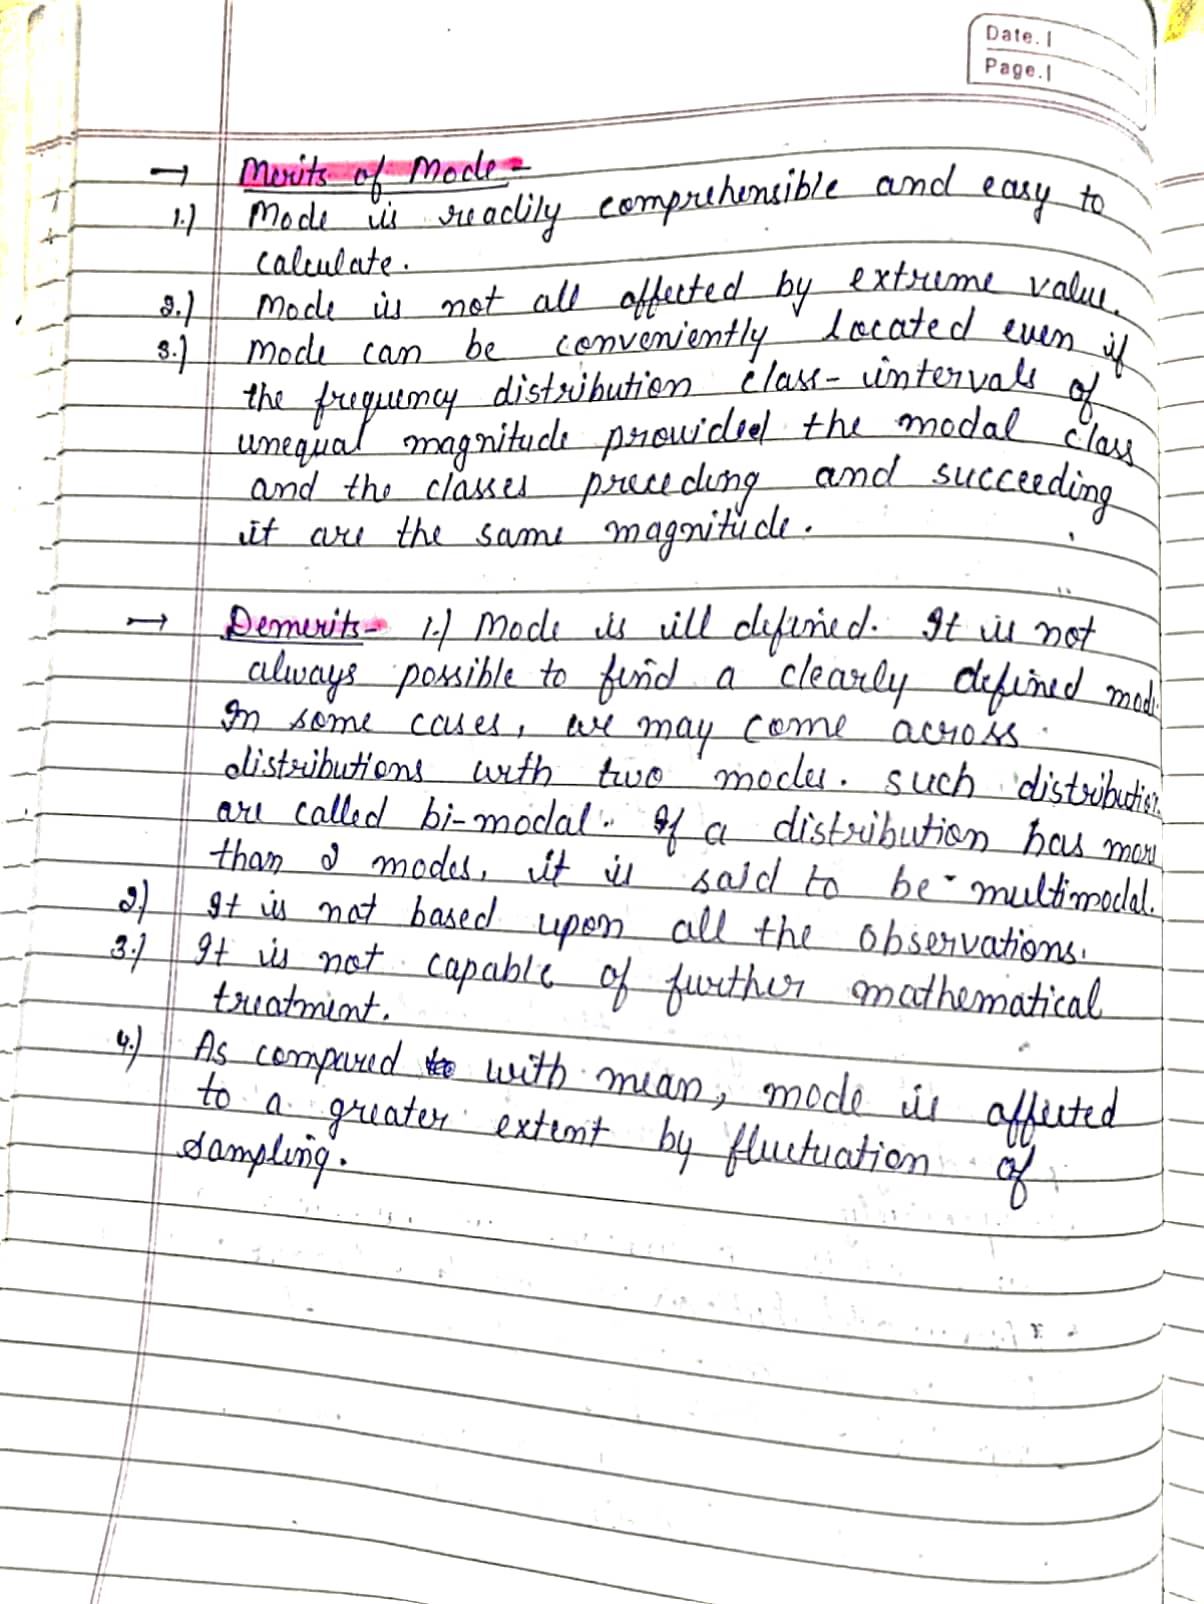 Date.
Page.
→ Merits of Mode -
1.) Mode is readily comprehensible and easy to
calculate.
2.) Mode is not all affected by extreme value.
3.) Mode can be conveniently located even if
the frequency distribution class-intervals of
unequal magnitude provided the modal class
and the classes preceding and succeeding
it are the same magnitude.
→ Demerits- 1.) Mode is ill defined. It is not
always possible to find a clearly defined mode
In some cases, we may come across
distributions with two modes. Such distribution
are called bi-modal. If a distribution has more
than 2 modes, it is said to be multimodal.
2.) It is not based upon all the observations.
3.) It is not capable of further mathematical
treatment.
4.) As compared with mean, mode is affected
to a greater extent by fluctuation of
sampling.